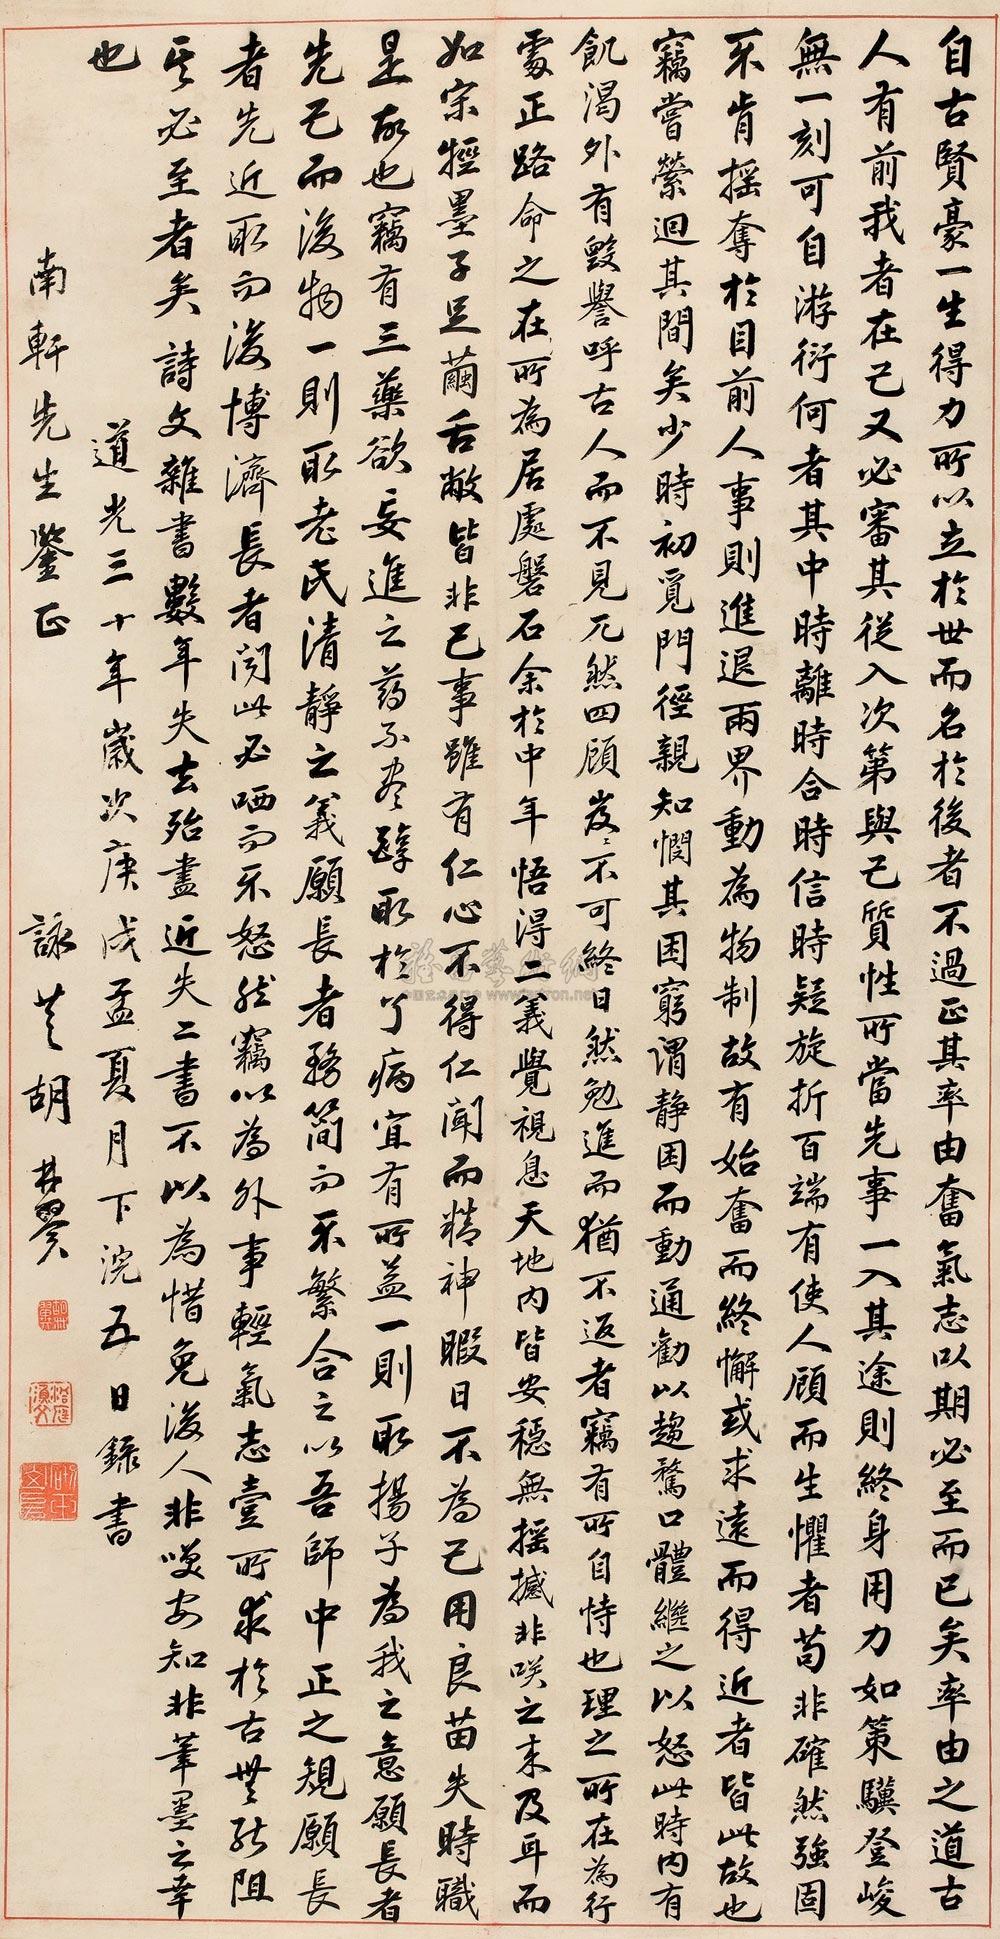 自古賢豪一生得力所以立於世而名於後者不過正其率由奮氣志以期必至而已矣率由之道古
人有前我者在己又必審其從入次第與己質性所當先事一入其途則終身用力如策驥登峻
無一刻可自游衍何者其中時離時合時信時疑旋折百端有使人顧而生懼者苟非確然強固
不肯搖奪於目前人事則進退兩界動為物制故有始奮而終懈或求遠而得近者皆此故也
竊嘗縈迴其間矣少時初覓門徑親知憫其困窮謂静困而動通勸以趨騖口體繼之以怒此時内有
飢渴外有毀譽呼古人而不見兀然四顧岌岌不可終日然勉進而猶不返者竊有所自恃也理之所在為行
處正路命之在所為居處磐石余於中年悟得二義覺視息天地内皆安穩無搖撼非咲之来及耳而
如宗牼墨子足繭舌敝皆非己事雖有仁心不得仁聞而精神暇日不為己用良苗失時職
是故也竊有三藥欲妄進之药不盡醇取於了病宜有所益一則取揚子為我之意願長者
先己而後物一則取老氏清靜之義願長者務簡而不繁合之以吾師中正之規願長
者先近取而後博濟長者閱此必哂而不怒然竊以為外事輕氣志壹所求於古無能阻
其必至者矣詩文雜書數年失去殆盡近失二書不以為惜免後人非唉安知非筆墨之幸
也
道光三十年歲次庚戌孟夏月下浣五日錄書
南軒先生鑒正
詠芝胡林翼